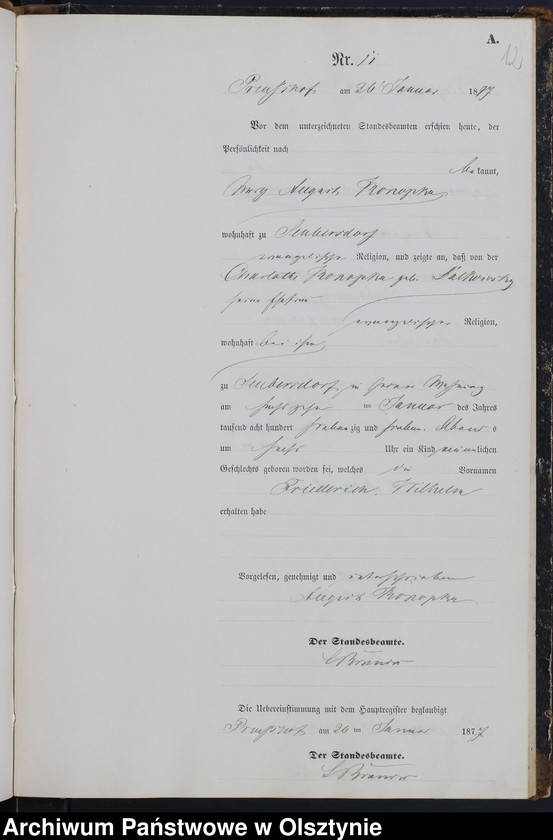 A.
12
Nr. 11
Preußhof am 26 Januar 1877
Vor dem unterzeichneten Standesbeamten erschien heute, der
Persönlichkeit nach
bekannt,
August Konopka
wohnhaft zu Seubersdorf
evangelischer Religion, und zeigte an, daß von der
Charlotte Konopka geb.
seine Ehefrau
evangelischer Religion,
wohnhaft bei ihm
zu Seubersdorf in seiner Wohnung
am sechszehn ten Januar des Jahres
tausend acht hundert siebenzig und sieben Abends
um sechs Uhr ein Kind männlichen
Geschlechts geboren worden sei, welches die Vornamen
Friederich Wilhelm
erhalten habe
Vorgelesen, genehmigt und unterschrieben
August Konopka
Der Standesbeamte.
Die Uebereinstimmung mit dem Hauptregister beglaubigt
am 26 ten Januar 1877
Der Standesbeamte.
Archiwum Państwowe w Olsztynie